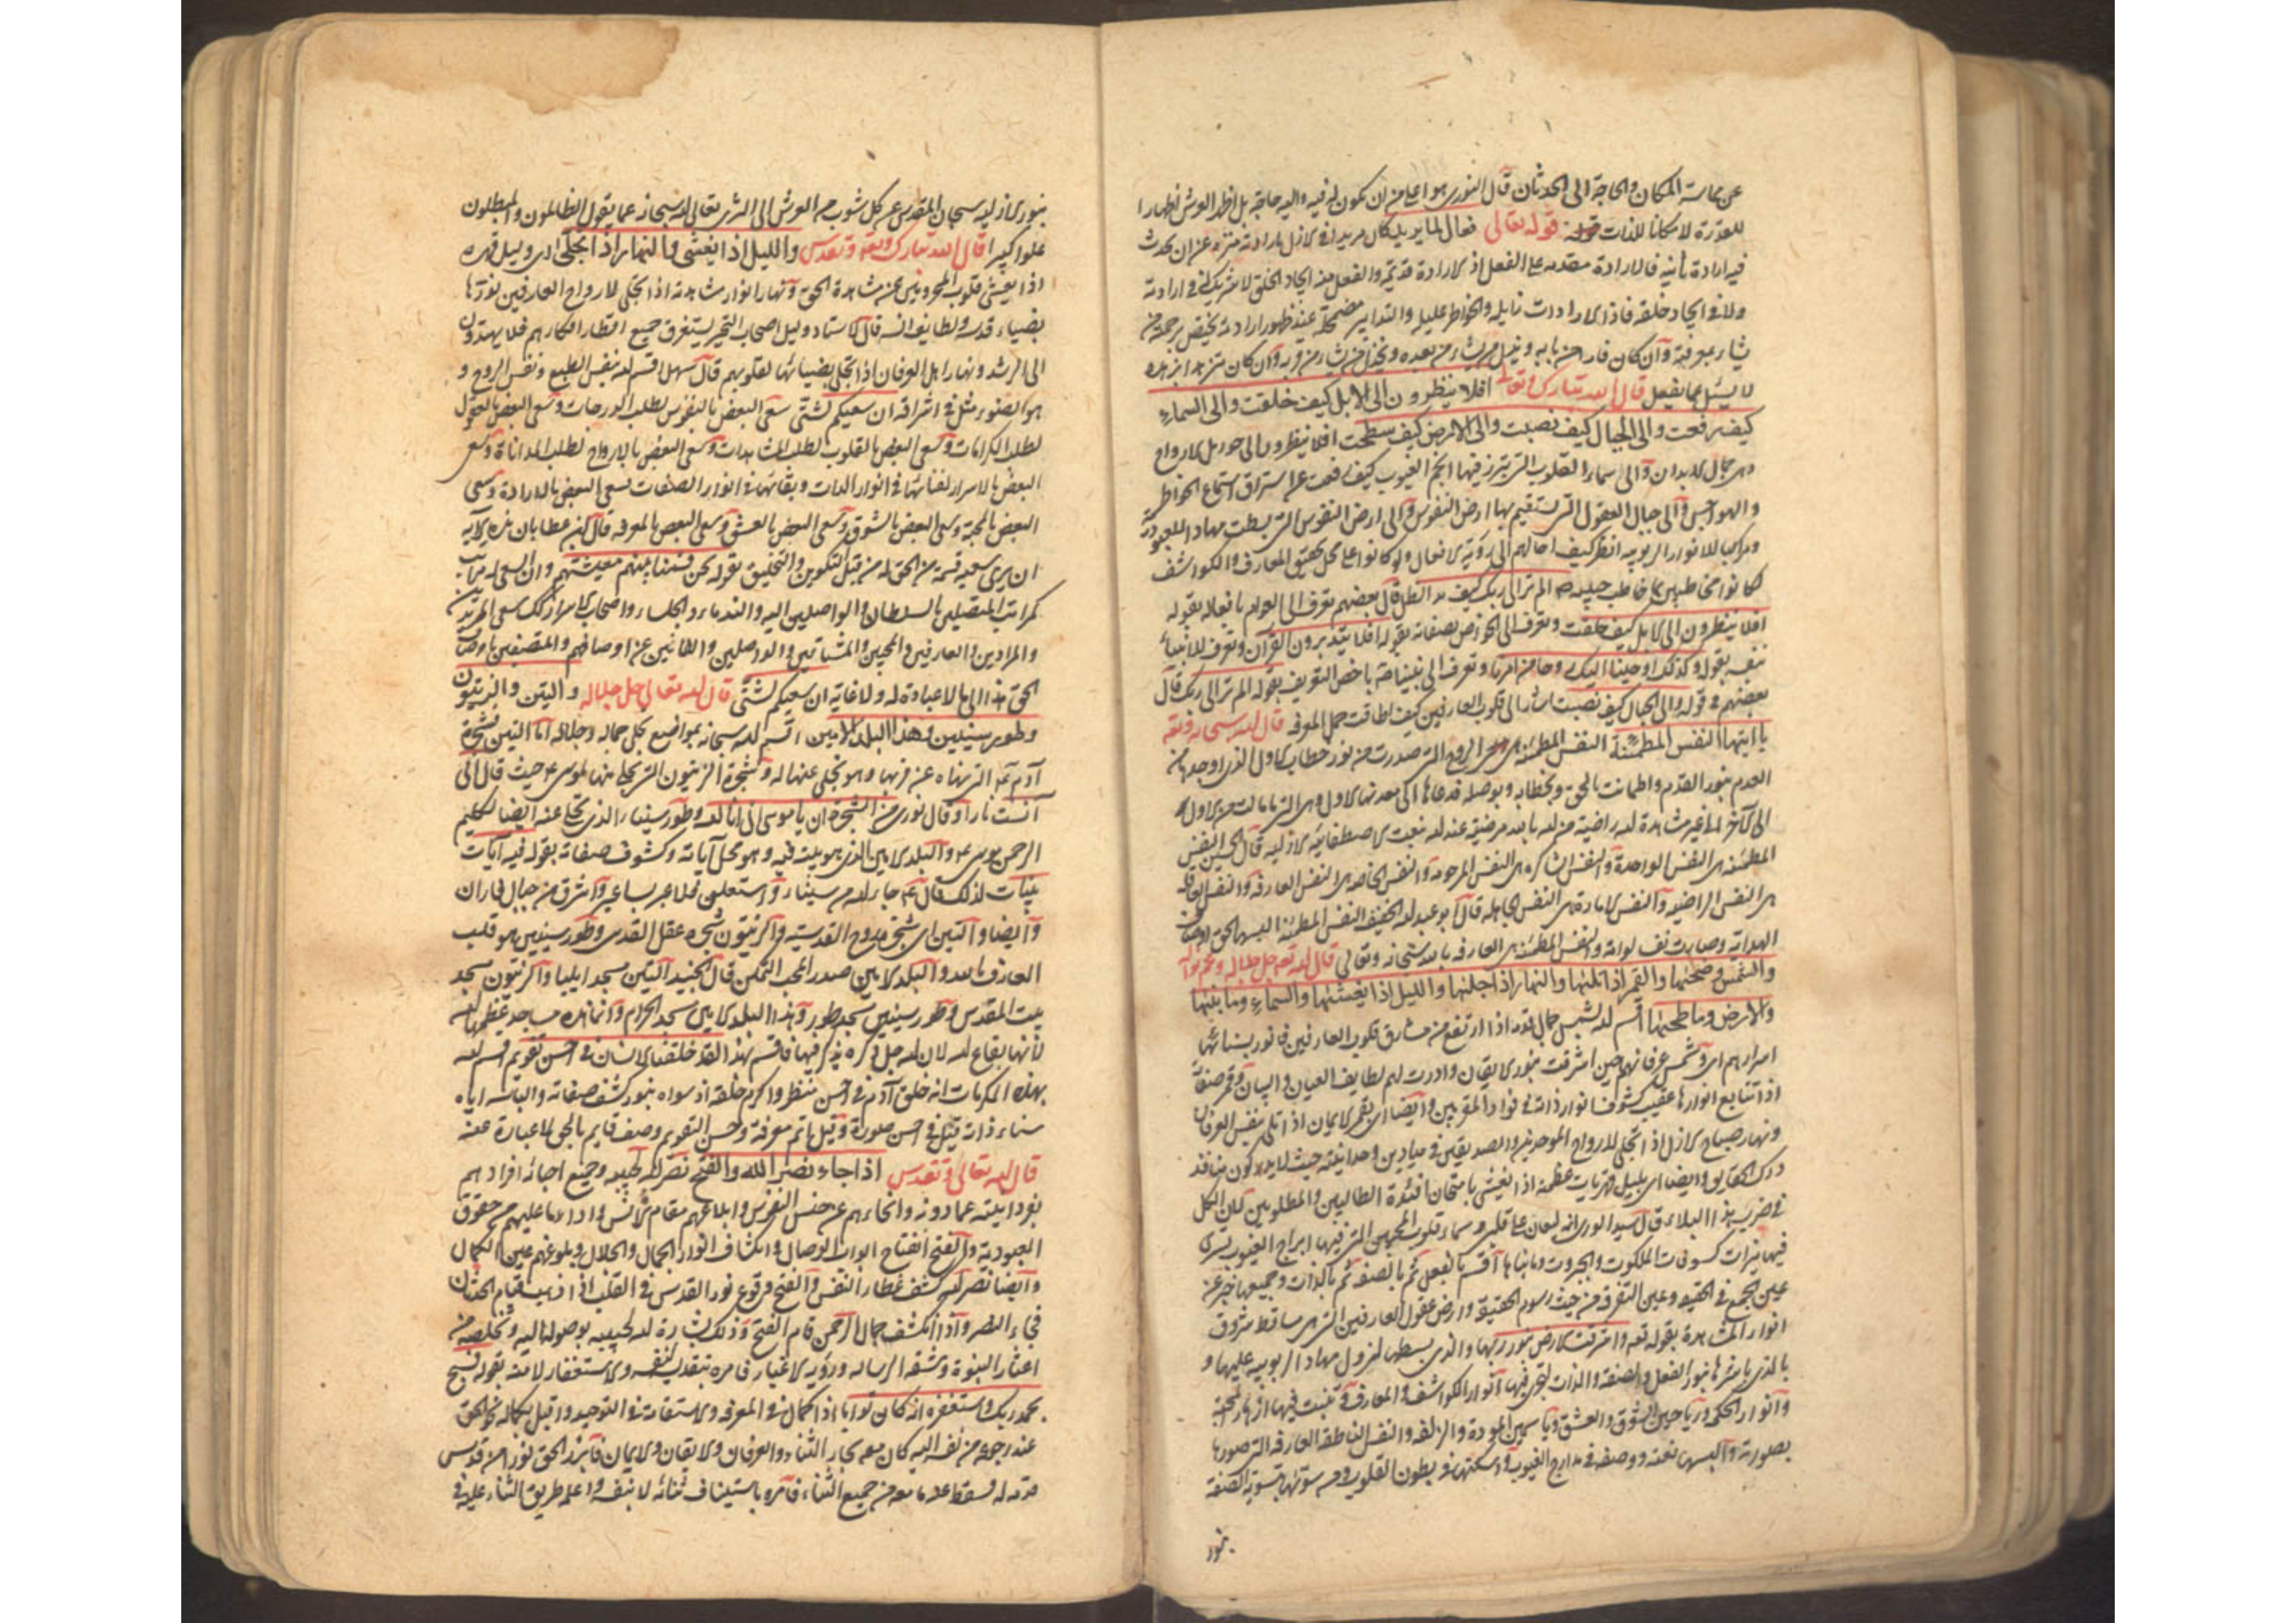 عن مماسة المكان والحاجة الى الحدثان قال النورى هو اعلى من ان يكون له فيه واليه حاجة بل اظهر العرش اظهارا
للقدرة لا مكانا للذات قوله تعالى فعال لما يريد كان مريدا فى الازل بارادته منزه عن ان يحدث
فيه ارادة ثانية فالارادة مقدمه على الفعل اذ الارادة قديمة والفعل منه ايجاد الخلق لا شريك فى ارادته
ولا فى ايجاد خلقه فاذا الارادات زايله والخواطر عليل والتدابير مضمحلة عند ظهور ارادته يختص برحمته من
يشاء بمعرفته وان كان فارا من بابه من يشاء من بعده من يشاء من وان كان
لا يسئل عما يفعل قال الله تبارك وتعالى افلا ينظرون الى الابل كيف خلقت والى السماء
كيف رفعت والى الجبال كيف نصبت والى الارض كيف سطحت افلا ينظرون الى الارواح
فى الابدان والى سماء القلوب التى فيها انجم الغيوب كيف رفعت عن استراق استماع الخواطر
والهواجس والى جبال العقول التى تستقيم بها ارض النفوس والى ارض النفوس التى بسطت مهادا للعبودية
للانوار الربوبيه انظر كيف احالهم الى رؤية الافعال ولو كانوا على محل تحقيق المعارف والكواشف
كانوا مخاطبين بما خاطب حبيبه الم تر الى ربك كيف مد الظل قال بعضهم تعرف الى العوام بافعاله بقوله
افلا ينظرون الى الابل كيف خلقت وتعرف الى الخواص بصفاته بقوله افلا يتدبرون القران وتعرف للانبياء
بنفسه بقوله وكذلك اوحينا اليك روحا من امرنا وتعرف الى نبينا باخص التعريف بقوله الم تر الى ربك قال
بعضهم فى قوله والى الجبال كيف نصبت الى قلوب العارفين كيف اطاقت حمل المعرفه قال الله سبحانه وتعالى
يا ايتها النفس المطمئنة النفس المطمئنه هى الروح التى صدرت من نور خطاب الاول الذى اوجدها من
العدم بنور القدم واطمانت بالحق وبخطابه وبوصله فدعاها الى معدنها الاول وهى التى ما مالت من الاول
الى الاخر الى غير مشاهدة الله راضية من الله بالله مرضية عند الله بنعت الاصطفائيه الازليه قال الحسين النفس
المطمئنه هى النفس الواحدة والنفس الشاكره هى النفس المرحومه والنفس الخاصه هى النفس العارفه والنفس العاقله
هى النفس الراضيه والنفس الامارة هى النفس الجاهله قال ابو عبد الله الخفيف النفس المطمئنه البسها الحق اوصاف
الهداية وصارت نفس لوامة والنفس المطمئنه هى العارفه بالله سبحانه وتعالى قال الله تعالى جل جلاله
والشمس وضحيها والقمر اذا تليها والنهار اذا جليها والليل اذا يغشيها والسماء وما بنيها
والارض وما طحيها اقسم الله بشمس جمال قدمه اذا ارتفع من مشارق قلوب العارفين فانور بسنائها
اسرارهم اى وشمس عرفانهم حين اشرقت بنور الايقان وادرت لهم لطايف العيان والبيان وقمر صفاته
اذا تتابع انوارها عقيب كشوف انوار ذاته فى فواد المقربين وايضا اى بقمر الايمان اذا تلى شمس العرفان
ونهار صباح الازل اذا تجلى لارواح الموحدين والصديقين فى ميادين وحدانيته حيث لا يدركون منافذ
درك الحقايق وايضا اى بليل قهريات عظمته اذا يغشى بامتحان افئدة الطالبين والمطلوبين كان الكل
فى ضرب هذا البلاء قال سماء قلوب المحبين التى فيها ابراج الغيوب تسرى
فيها نيرات الملكوت والجبروت وما بناها اقسم بالفعل ثم بالصنعه ثم بالذات وجميعها خبر عن
عين الجمع فى الحقيقه وعين التفرقه من حيث رسوم الحقيقة وارض عقول العارفين التى هى مساقط شروق
انوار المشاهدة بقوله تعالى واشرقت الارض بنور ربها والذى بسطها لنزول مهاد الربوبيه عليها و
بالذى باشرها بنور الفعل والصنعة والذات لتجرى فيها انوار الكواشف والمعارف وتنبت فيها ازهار المحبة
وانوار الحكم ورياحين الشوق والعشق وياسمين المودة والزلفه والنفس الناطقة العارفه التى صورها
بصورته والبسها نعته ووصفه فى مدارج الغيوب واسكنها فى بطون القلوب وسويها بتسوية الصنعة
بنور
بنور الازليه سبحان المقدس عن كل شوب من العرش الى الثرى تعالى الله سبحانه عما يقول الظالمون والمبطلون
علوا كبيرا قال الله تبارك وتعالى وتقدس والليل اذا يغشى والنهار اذا تجلى اى وليل قهره
اذا يغشى قلوب المحرومين عن مشاهدة الحق ونهار انوار مشاهدته اذا تجلى لارواح العارفين نورها
بضياء قدسه ولطايف انسه قال الاستاد وليل اصحاب التحير يستغرق جميع اقطار افكارهم فلا يهتدون
الى الرشد ونهار اهل العرفان اذا تجلى بضيائها لقلوبهم قال سهل اقسم الله بنفس الطبع ونفس الروح و
هو الضوء مثل فى اشراقه ان سعيكم لشتى سعى البعض بالنفوس لطلب الدرجات وسعى البعض بالعقول
لطلب الكرامات وسعى البعض بالقلوب لطلب المشاهدات وسعى البعض بالارواح لطلب المداناة وسعى
البعض بالاسرار لفنائها فى انوار الذات وبقائها فى انوار الصفات سعى البعض بالارادة وسعى
البعض بالمحبة وسعى البعض بالشوق وسعى البعض بالعشق وسعى البعض بالمعرفه قال ابن عطا بان هذه الاية
ان يرى سعيه قسمة من الحق له من قبل التكوين والتخليق بقوله نحن قسمنا بينهم معيشتهم وان السعى له مراتب
كمراتب المتصلين بالسلطان والواصلين اليه والندماء والجلساء واصحاب الاسرار كذلك سعى المريدين
والمرادين والعارفين والمحبين والمشتاقين والواصلين والفانين عن اوصافهم والمتصفين باوصاف
الحق هذا الى ما لا عبادة له ولا غاية ان سعيكم لشتى قال الله تعالى جل جلاله والتين والزيتون
وطور سينين وهذا البلد الامين اقسم الله سبحانه بمواضع تجلى جماله وجلاله اما التين شجرة
آدم التى نهاه عن قربها وهو تجلى عنها له وشجرة الزيتون التى تجلى منها لموسى حيث قال انى
آنست نارا وقال نورى من الشجرة ان يا موسى انى انا الله وطور سيناء الذى تجلى عنه ايضا لكليم
الرحمن موسى والبلد الامين الذى هو بيت فيه وهو محل آياته وكشوف صفاته بقوله فيه آيات
بينات لذلك قال جاء الله من سيناء واستعلى بساعير واشرق من جبال فاران
وايضا والتين اى شجرة الروح القدسيه والزيتون شجره عقل القدسى وطور سينين هو قلب
العارف بالله والبلد الامين صدر المحب التمكن قال الجنيد التين مسجد ايليا والزيتون مسجد
بيت المقدس وطور سينين مسجد طور وهذا البلد الامين مسجد الحرام وانما هذه مساجد عظمها الله
لانها بقاع الله لان الله جل ذكره يذكر فيها فاقسم بهذا لقد خلقنا الانسان فى احسن تقويم اقسم الله
بهذه المكرمات انه خلق آدم فى احسن منظر واكرم خلقه اذ سواه بنور كشف صفاته والباسه اياه
سناء ذاته قيل فى احسن صورة وقيل باتم معرفة واحسن التقويم وصف قايم بالحق لا عبارة عنه
قال الله تعالى وتقدس اذا جاء نصر الله والفتح نصر الله لحبيبه وجميع احبائه افرادهم
بفردانيته عما دونه وانجاءهم عن حبس النفوس وابلاغهم مقام الانس واداء ما عليهم من حقوق
العبودية والفتح انفتاح ابواب الوصال وانكشاف انوار الجمال والجلال وبلوغهم عين الكمال
وايضا نصر الله كشف غطاء النفس والفتح وقوع نور القدس فى القلب اذا ذهب قتام الحدثان
فجاء النصر واذا انكشف جمال الرحمن قام الفتح وذلك بشارة الله لحبيبه بوصوله اليه وتخلصه من
اعناء النبوة ومشقة الرساله ورؤيه الاغيار فامره بتقديس نفسه والاستغفار لامته بقوله فسبح
بحمد ربك واستغفره انه كان توابا اذا كمال فى المعرفه والاستقامة فى التوحيد واقبل بكماله نحو الحق
عند رجوعه من نفسه اليه كان معه بحار الثناء والعرفان والايقان والايمان فابرز الحق نورا من قدسى
قدمه له فسقط عنه ما معه من جميع الثناء فامره باستيناف ثنائه لا بنفسه واعلمه طريق الثناء عليه فى